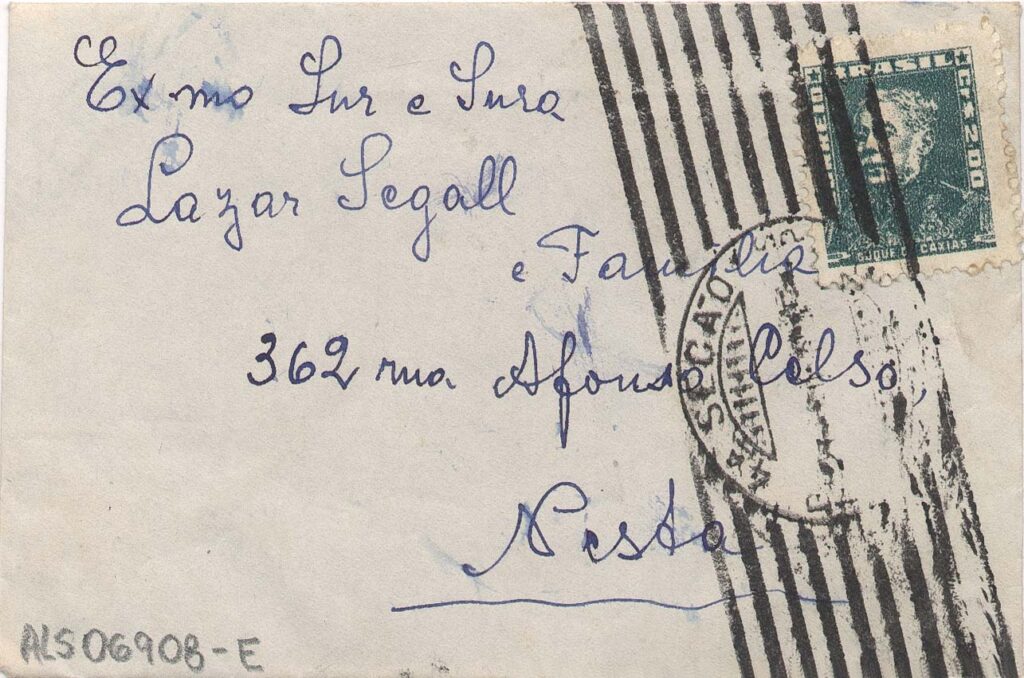 Exmo Snr e Snra
Lazar Segall
e Familia
362 rua Afonso Celso,
Nesta
BRASIL
CORREIO
CR$ 2,00
DUQUE DE CAXIAS
ALS06908-E